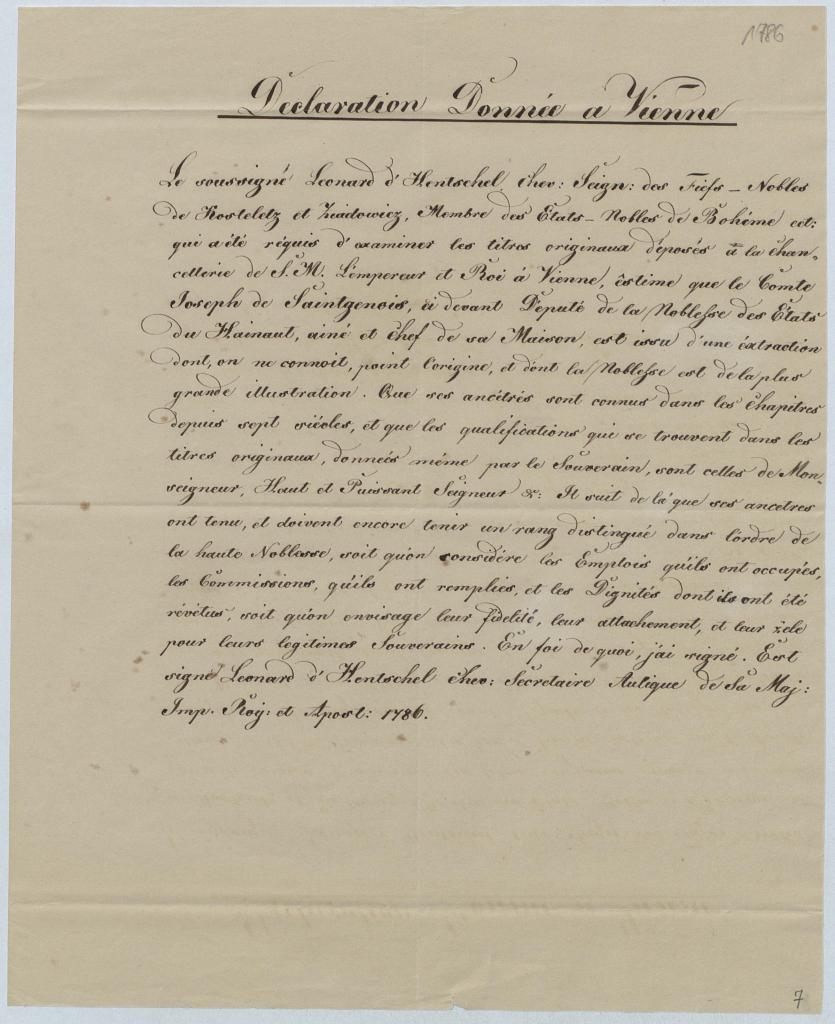 1786
Declaration Donnée a Vienne
Le soussigné Leonard d'Hentschel chev: Seign: des Fiefs – Nobles
de Kosteletz et Ziadowicz, Membre des Etats – Nobles de Bohéme cet:
qui a été réquis d'examiner les titres originaux déposés a la Chan-
cellerie de S. M. L'empereur et Roi á Vienne, éstime que le Comte
Joseph de Saintgenois, ci devant Député de la Noblesse des Etats
du Hainaut, ainé et Chef de sa Maison, est issu d'une éxtraction
dont, on ne connoit, point l'origine, et dont la Noblesse est de la plus
grande illustration. Que ses ancétrés sont connus dans les Chapitres
depuis sept siécles, et que les qualifications qui se trouvent dans les
titres originaux, donneés méme par le Souverain, sont celles de Mon-
seigneur, Haut et Puissant Seigneur &: Il suit de lá que ses ancetres
ont tenu, et doivent encore tenir un rang distingué dans l'ordre de
la haute Noblesse, soit qu'on considére les Emplois qu'ils ont occupés,
les Commissions, qu'ils ont remplies, et les Dignités dont ils ont été
révétus, soit qu'on envisage leur fidelité, leur attachement, et leur zele
pour leurs legitimes Souverains. En foi de quoi, j'ai signé. Est
signé Leonard d'Hentschel chev: Secretaire Aulique de Sa Maj:
Imp. Roy: et Apost: 1786.
7